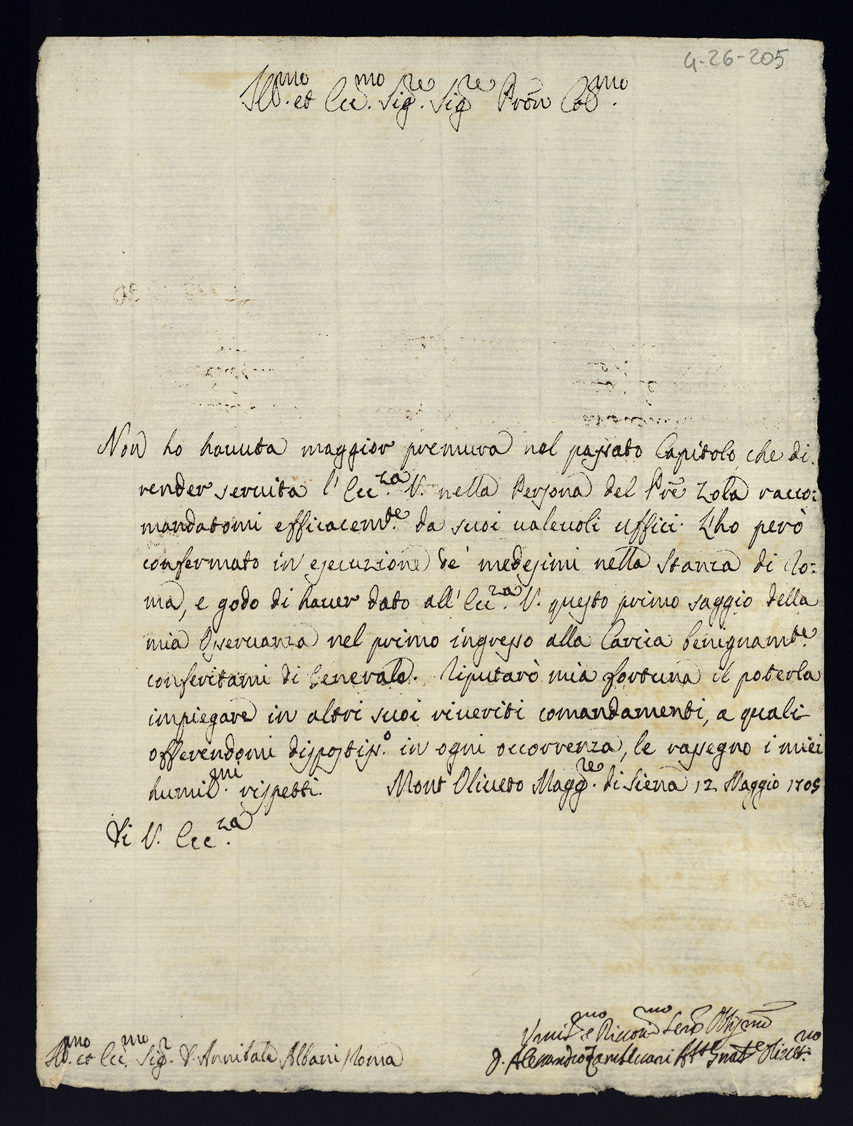 4-26-205
Ill.mo et Ecc.mo Sig.re Sig.re Pron Col.mo
Non ho hauuta maggior premura nel passato Capitolo, che di
render seruita l'Ecc.za V. nella Persona del Pre Zola racco:
mandatomi efficacem.te da suoi ualeuoli uffici. L'ho però
confermato in esecuzione de' medesimi nella stanza di Ro:
ma, e godo di hauer dato all'Ecc.za V. questo primo saggio della
mia Osseruanza nel primo ingresso alla Carica benignam.te
conferitami di Generale. Riputarò mia fortuna il poterla
impiegare in altri suoi riueriti comandamenti, a quali
offerendomi dispostiss.o in ogni occorrenza, le rassegno i miei
humil.mi rispetti. Mont'Oliueto Magg.re di Siena 12 Maggio 1705
Di V. Ecc.za
Vmil.mo e Diuot.mo Seru Obl.mo
D. Alessandro Ab.te Gnale Oliuet.no
Ill.mo et Ecc.mo Sig.r D. Annibale Albani Roma